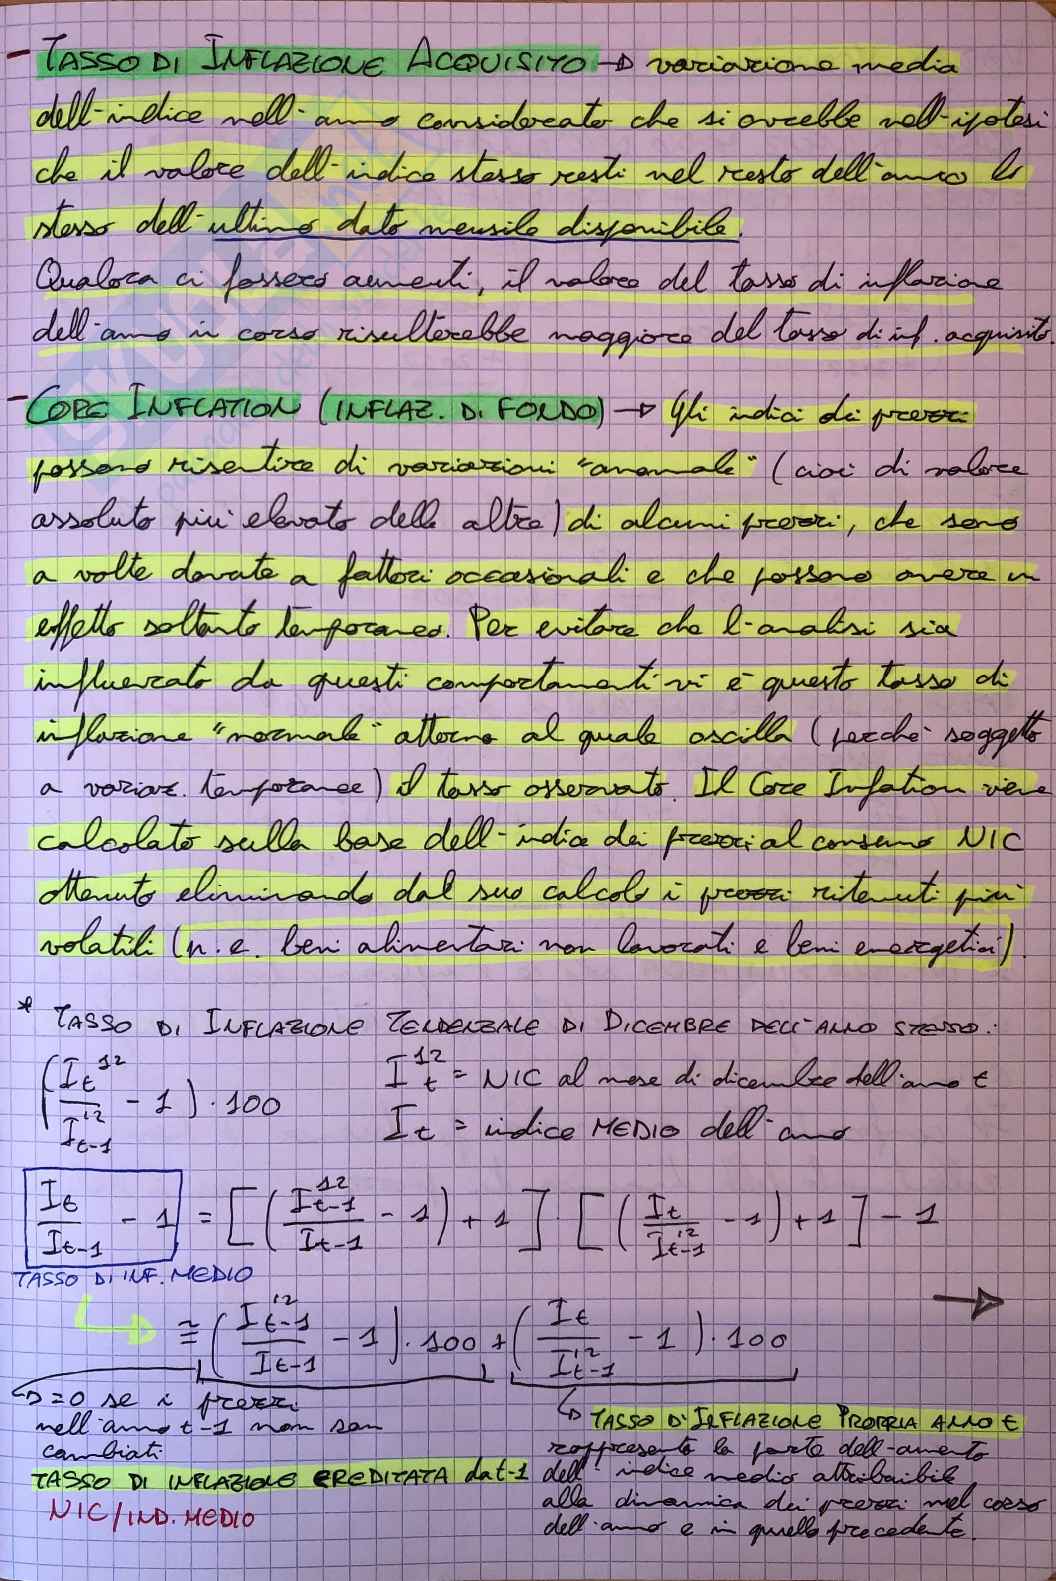 - TASSO DI INFLAZIONE ACQUISITO → variazione media
dell'indice nell'anno considerato che si avrebbe nell'ipotesi
che il valore dell'indice stesso resti nel resto dell'anno lo
stesso dell'ultimo dato mensile disponibile.
Qualora ci fossero aumenti, il valore del tasso di inflazione
dell'anno in corso risulterebbe maggiore del tasso di inf. acquisito.
- CORE INFLATION (INFLAZ. DI FONDO) → Gli indici dei prezzi
possono risentire di variazioni "anomale" (cioè di valore
assoluto più elevato delle altre) di alcuni prezzi, che sono
a volte dovute a fattori occasionali e che possono avere un
effetto soltanto temporaneo. Per evitare che l'analisi sia
influenzata da questi comportamenti vi è questo tasso di
inflazione "normale" attorno al quale oscilla (perché soggetto
a variaz. temporanee) il tasso osservato. Il Core Infation viene
calcolato sulla base dell'indice dei prezzi al consumo NIC
ottenuto eliminando dal suo calcolo i prezzi ritenuti più
volatili (n.e. beni alimentari non lavorati e beni energetici).
* TASSO DI INFLAZIONE TENDENZIALE DI DICEMBRE DELL'ANNO STESSO:
(I_t^12 / I_t-1^12 - 1) · 100
I_t^12 = NIC al mese di dicembre dell'anno t
I_t = indice MEDIO dell'anno
I_t / I_t-1 - 1 = [(I_t-1^12 / I_t-1 - 1) + 1] · [(I_t / I_t-1^12 - 1) + 1] - 1
TASSO DI INF. MEDIO
≅ (I_t-1^12 / I_t-1 - 1) · 100 + (I_t / I_t-1^12 - 1) · 100
→ =0 se i prezzi
nell'anno t-1 non son
cambiati
TASSO DI INFLAZIONE EREDITATA da t-1
NIC/IND. MEDIO
→ TASSO DI INFLAZIONE PROPRIA ANNO t
rappresenta la parte dell'aumento
dell'indice medio attribuibile
alla dinamica dei prezzi nel corso
dell'anno e in quello precedente.